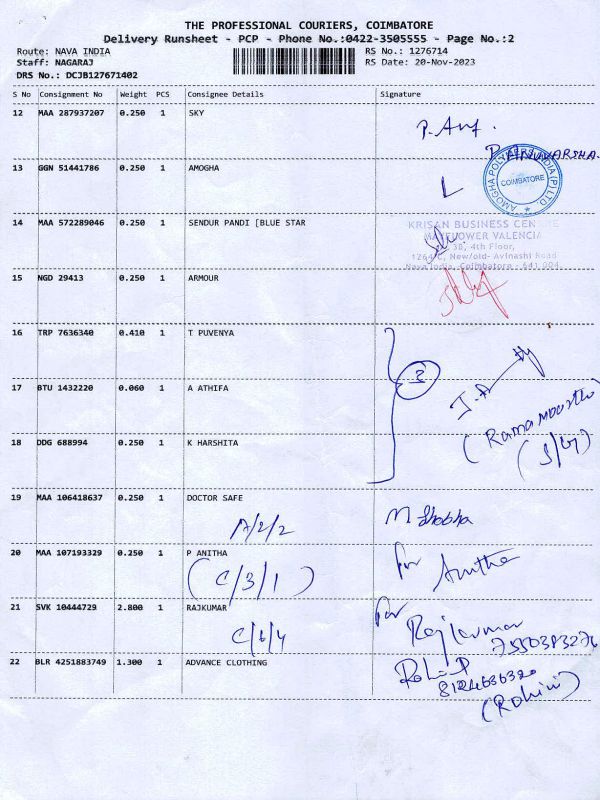 THE PROFESSIONAL COURIERS, COIMBATORE
Delivery Runsheet - PCP - Phone No.:0422-3505555 - Page No.:2
Route: NAVA INDIA RS No.: 1276714
Staff: NAGARAJ RS Date: 20-Nov-2023
DRS No.: DCJB127671402
S No Consignment No Weight PCS Consignee Details Signature
12 MAA 287937207 0.250 1 SKY
P. ANUVARSHA.
13 GGN 51441786 0.250 1 AMOGHA
AMOGHA POLYMERS INDIA (P) LTD
COIMBATORE
14 MAA 572289046 0.250 1 SENDUR PANDI [BLUE STAR
KRISAN BUSINESS CENTRE
MAYFLOWER VALENCIA
3D, 4th Floor,
1264 C, New/old- Avinashi Road
Nava India, Coimbatore - 641 004
15 NGD 29413 0.250 1 ARMOUR
16 TRP 7636340 0.410 1 T PUVENYA
3
17 BTU 1432220 0.060 1 A ATHIFA
18 DDG 688994 0.250 1 K HARSHITA
(S/G)
19 MAA 106418637 0.250 1 DOCTOR SAFE
A/2/2 M Shobha
20 MAA 107193329 0.250 1 P ANITHA
(C/3/1) for Anitha
21 SVK 10444729 2.800 1 RAJKUMAR
C/6/4 for Rajkumar
7550383276
22 BLR 4251883749 1.300 1 ADVANCE CLOTHING
8124636320
(Rohini)